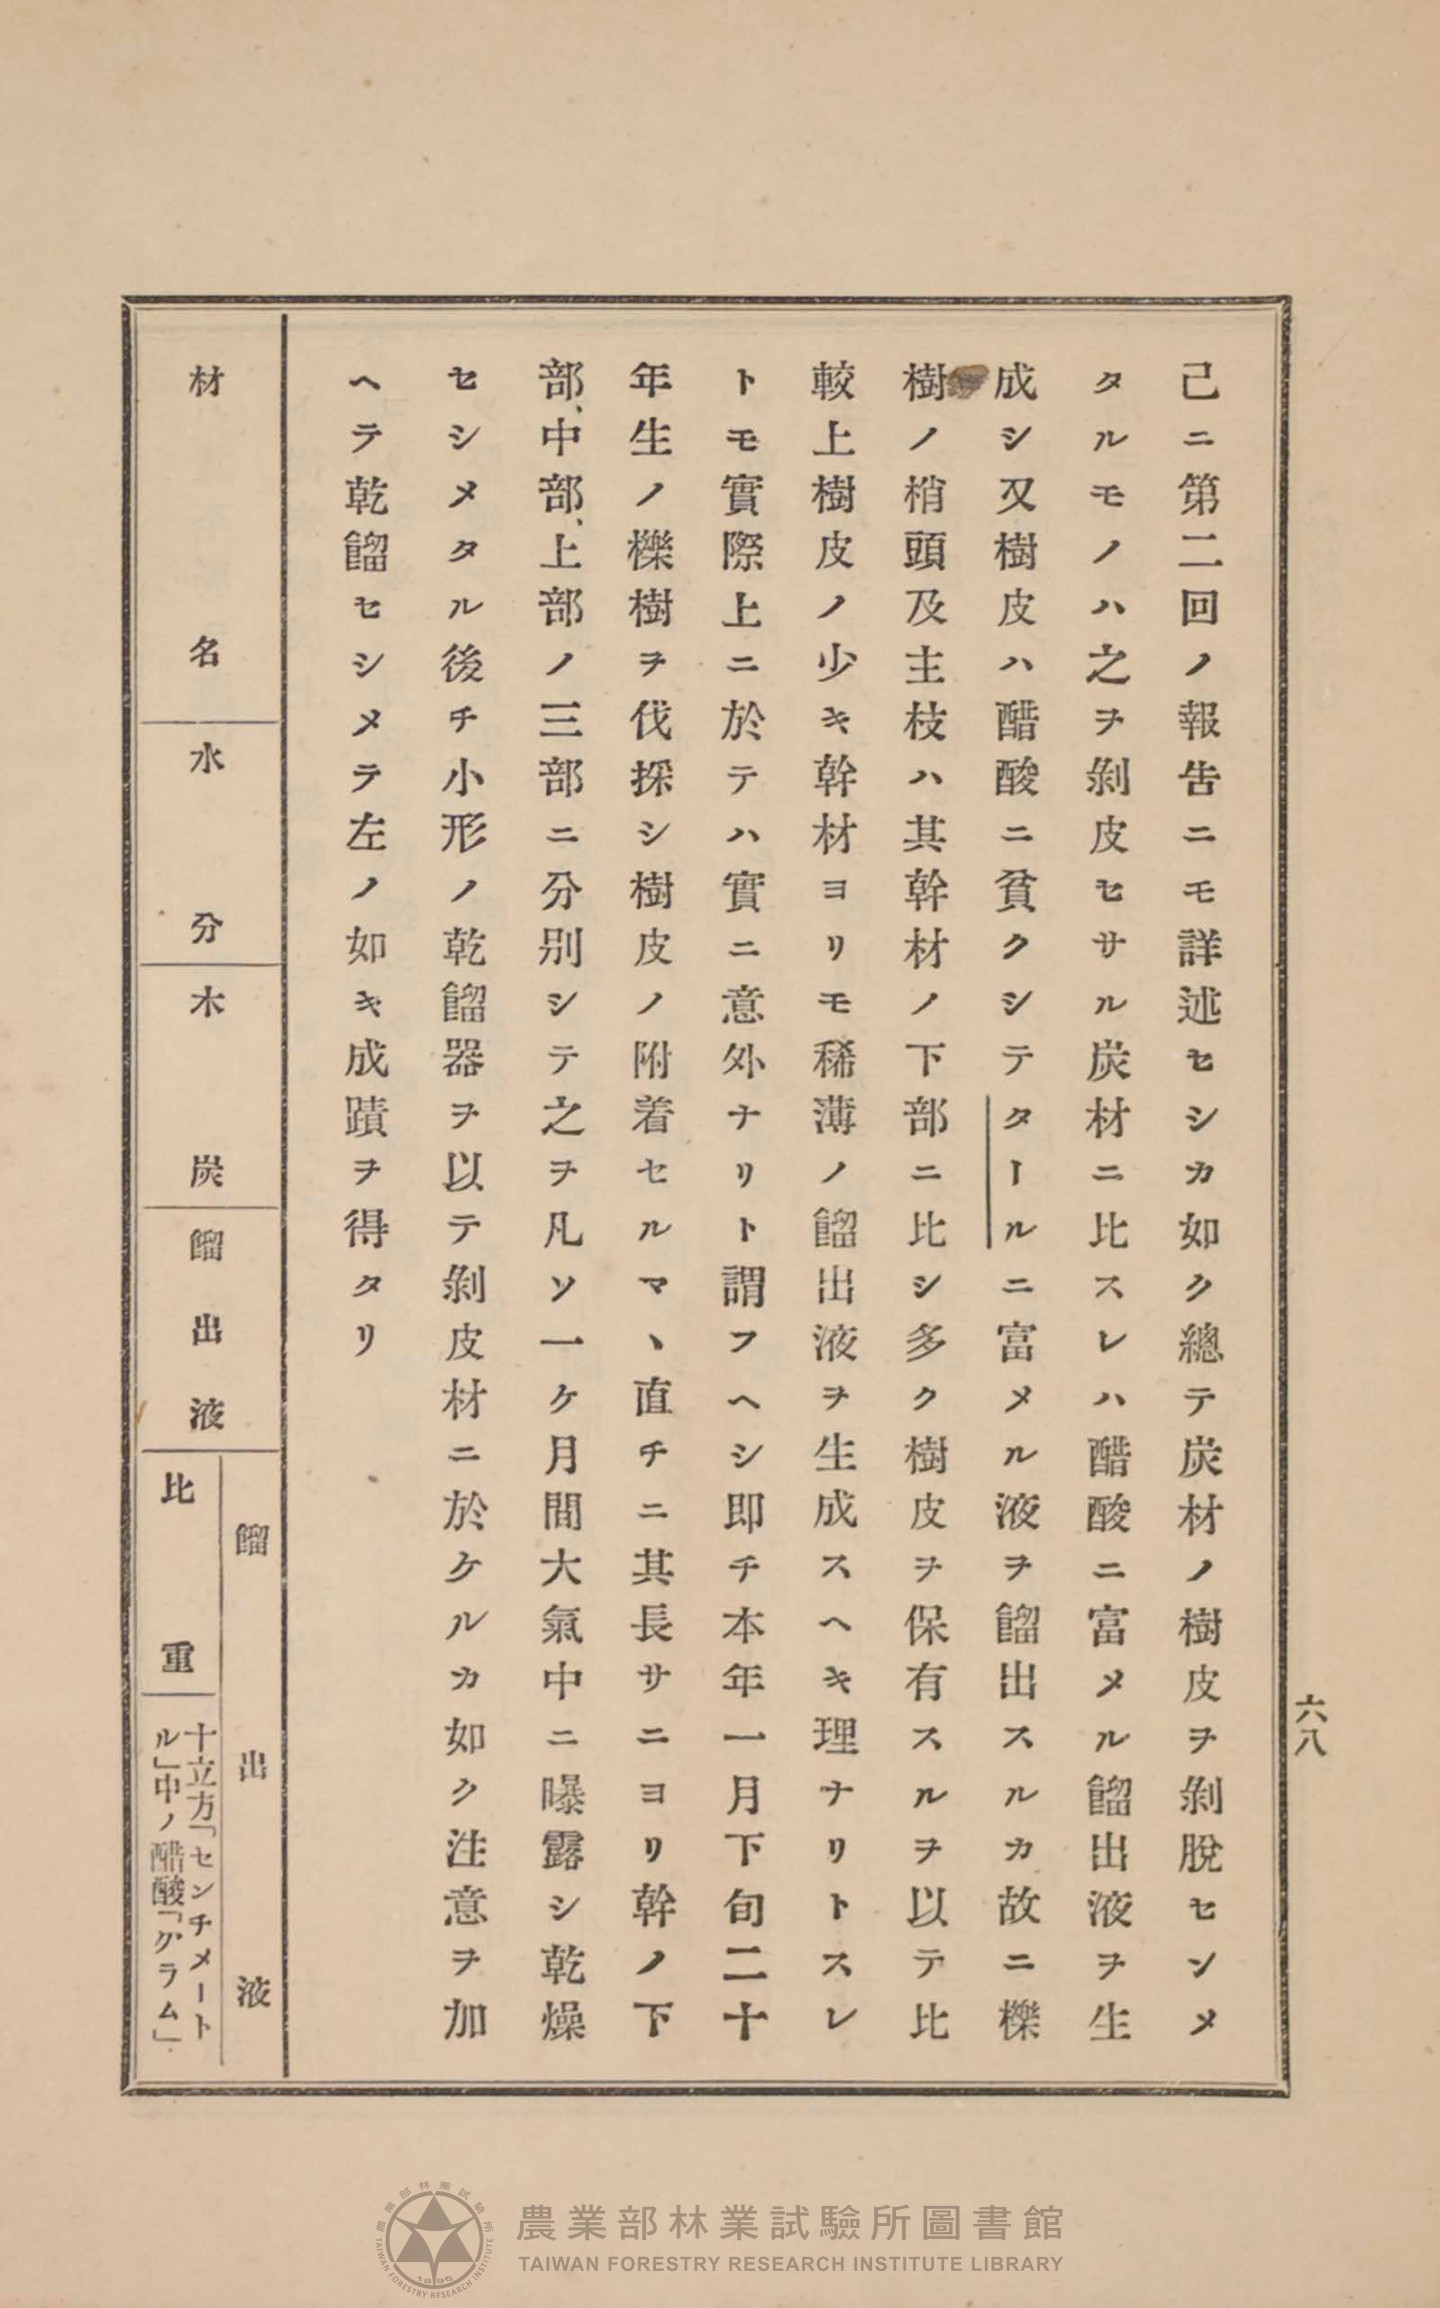 六八
己ニ第二回ノ報告ニモ詳述セシカ如ク總テ炭材ノ樹皮ヲ剝脫センメ
タルモノハ之ヲ剝皮セサル炭材ニ比スレハ醋酸ニ富メル餾出液ヲ生
成シ又樹皮ハ醋酸ニ貧クシテタールニ富メル液ヲ餾出スルカ故ニ櫟
樹ノ梢頭及主枝ハ其幹材ノ下部ニ比シ多ク樹皮ヲ保有スルヲ以テ比
較上樹皮ノ少キ幹材ヨリモ稀薄ノ餾出液ヲ生成スヘキ理ナリトスレ
トモ實際上ニ於テハ實ニ意外ナリト謂フヘシ即チ本年一月下旬二十
年生ノ櫟樹ヲ伐採シ樹皮ノ附着セルマヽ直チニ其長サニヨリ幹ノ下
部、中部、上部ノ三部ニ分別シテ之ヲ凡ソ一ケ月間大氣中ニ曝露シ乾燥
セシメタル後チ小形ノ乾餾器ヲ以テ剝皮材ニ於ケルカ如ク注意ヲ加
ヘテ乾餾セシメテ左ノ如キ成蹟ヲ得タリ
材名
水分
木炭
餾出液
餾出液
比重
十立方「センチメート
ル」中ノ醋酸「グラム」
農業部林業試驗所圖書館
TAIWAN FORESTRY RESEARCH INSTITUTE LIBRARY
農業部林業試驗所
TAIWAN FORESTRY RESEARCH INSTITUTE
1896